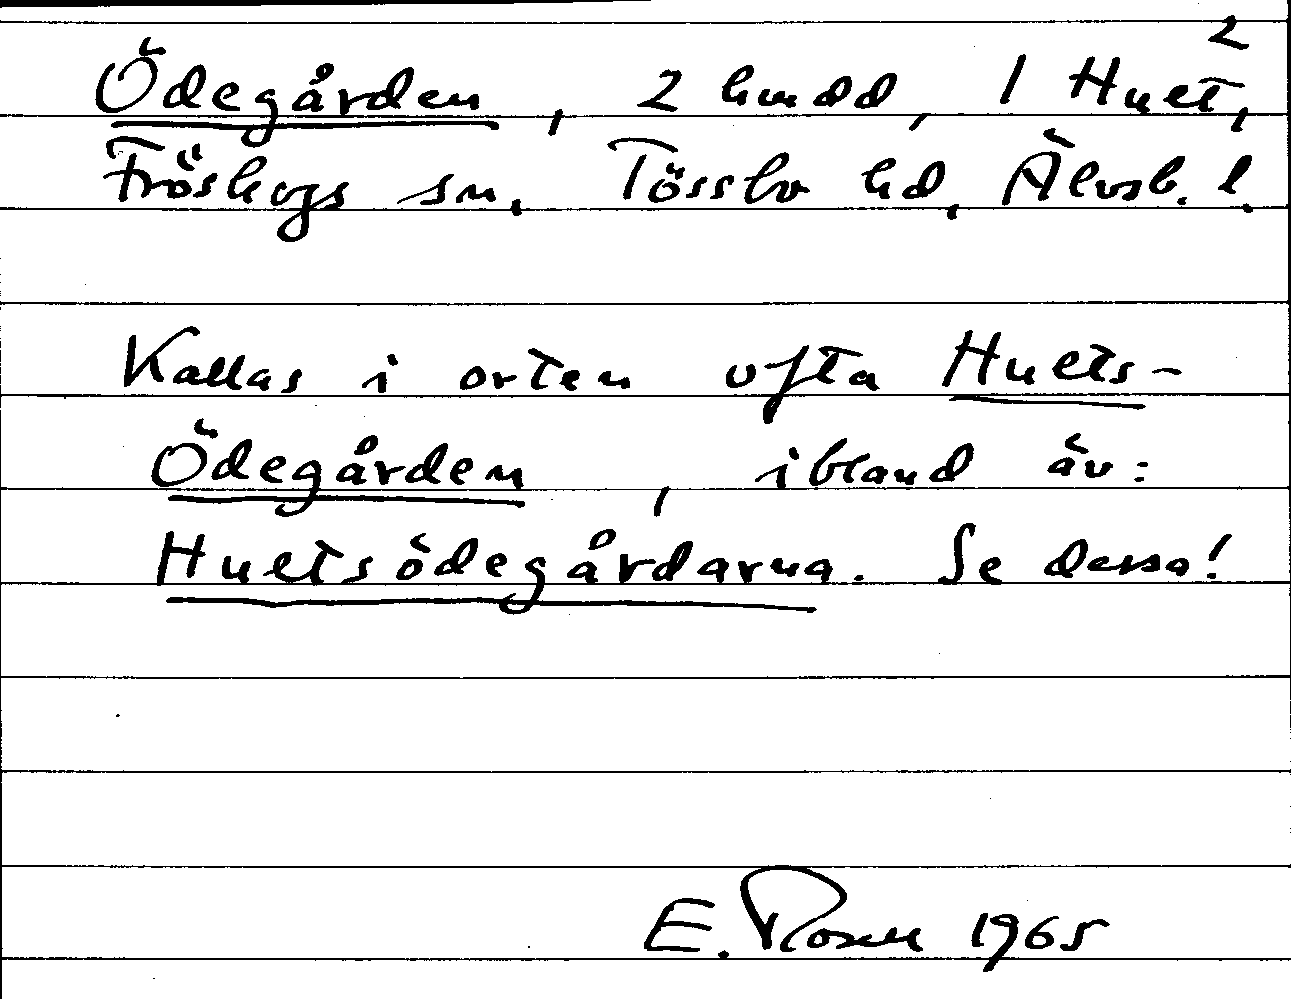 Ödegården, 2 hmdd, 1 Hult²,
Fröskogs sn, Tössbo hd, Älvsb. l.
Kallas i orten ofta Hults-
Ödegården, ibland äv:
Hultsödegårdarna. Se dessa!
E. Rosell 1965